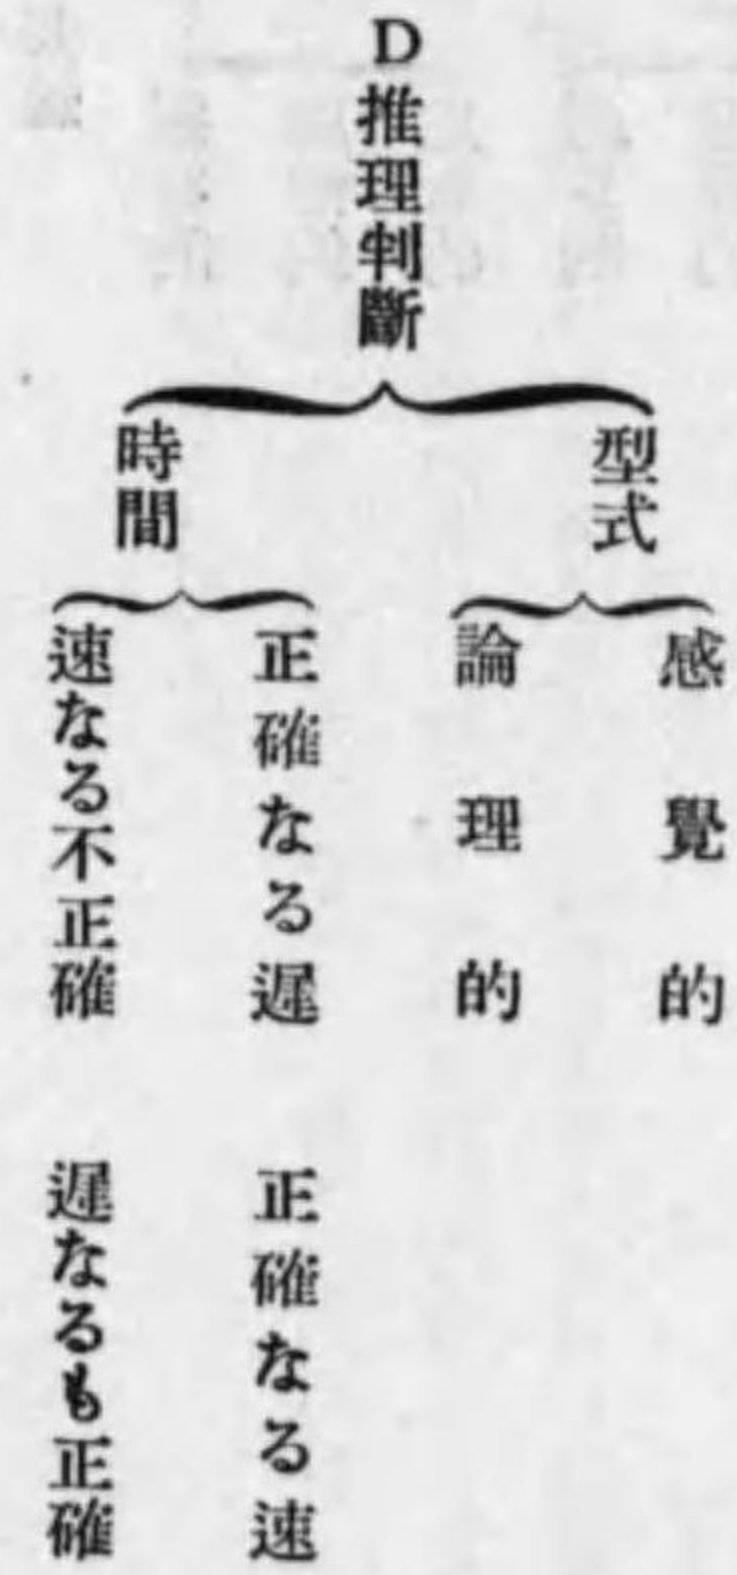 D推理判斷
型式
感覺的
論理的
時間
正確なる遲
正確なる速
速なる不正確
遲なるも正確